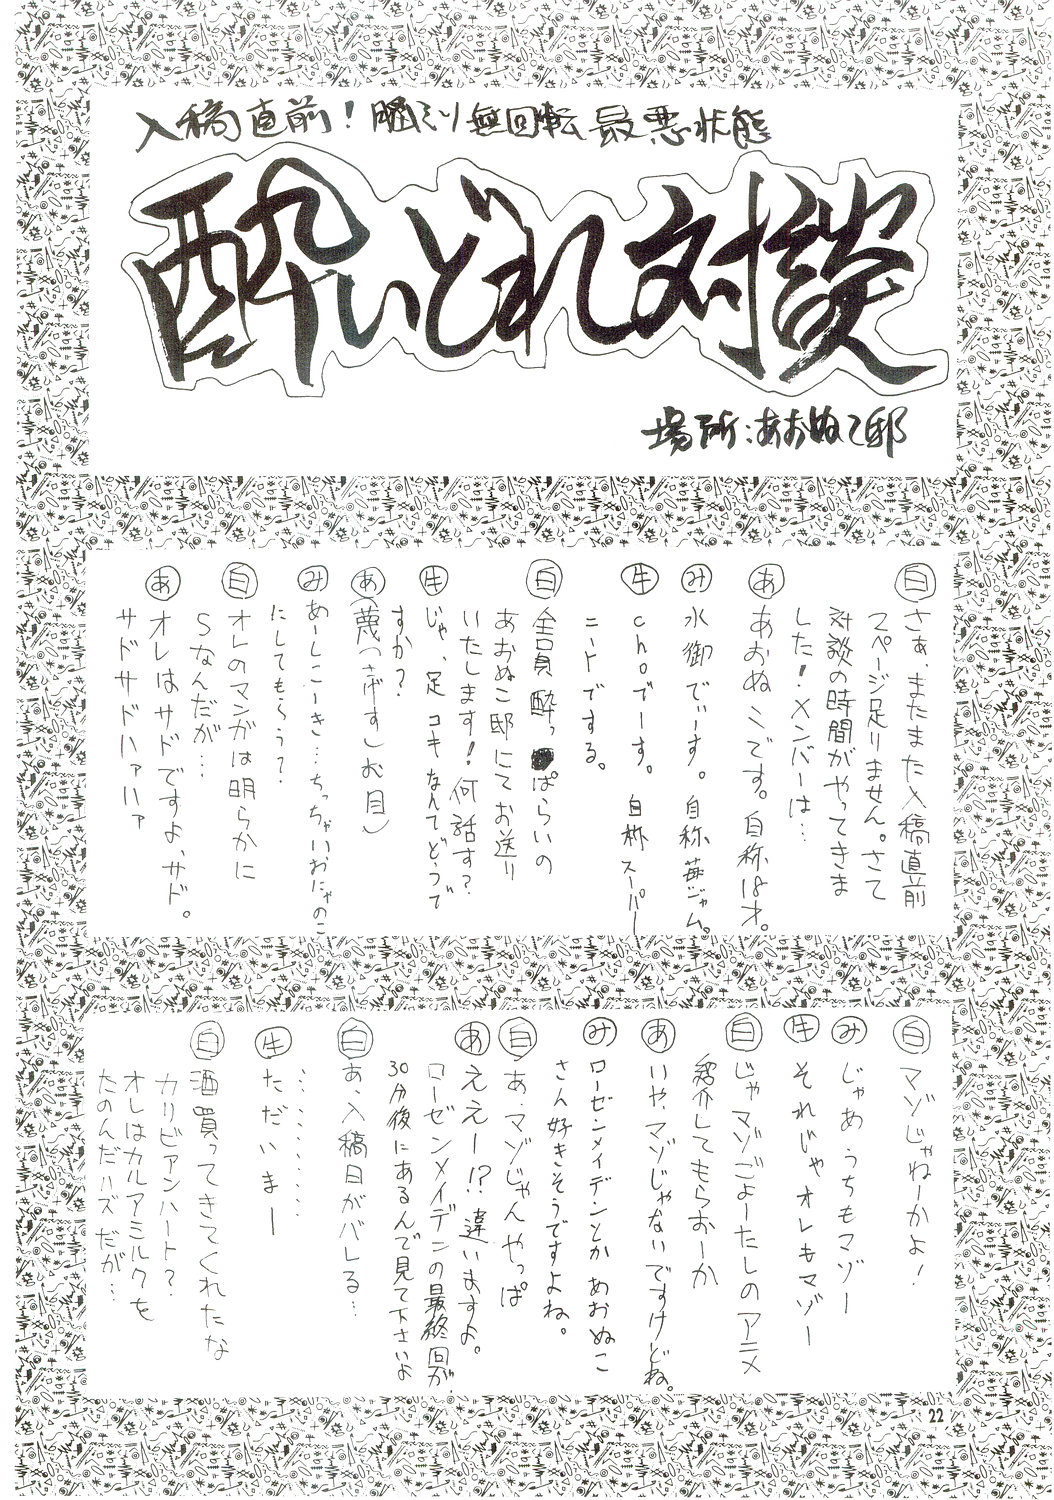 入稿直前！脳ミソ無回転最悪状態
酔いどれ対談
場所：あおぬこ邸
白 さぁ、またまた入稿直前
スページ足りません。さて
対談の時間がやってきま
した！メンバーは…
あ あおぬこです。自称18才。
み 水御でぃーす。自称苺ジャム。
牛 choでーす。自称スーパー
ニートでする。
白 全員酔っぱらいの
あおぬこ邸にてお送り
いたします！何話す？
牛 じゃ、足コキなんてどうで
すか？
あ（蔑っさげすしお目）
み めーしこーき…ちっちゃいおにゃのこ
にしてもらう？
白 オレのマンガは明らかに
Sなんだが…
あ オレはサドですよ、サド。
サドサドハァハァ
白 マゾじゃねーかよ！
み じゃあうちもマゾー
牛 それじゃオレもマゾー
白 じゃマゾごよーたしのアニメ
紹介してもらおーか
あ いや、マゾじゃないですけどね。
み ローゼンメイデンとかあおぬこ
さん好きそうですよね。
白 あ、マゾじゃんやっぱ
あ ええー!?違いますよ。
ローゼンメイデンの最終回が
30分後にあるんで見て下さいよ
白 あ、入稿日がバレる…
…………
牛 ただいまー
白 酒買ってきてくれたな
カリビアンハート？
オレはカルアミルクを
たのんだハズだが…
22